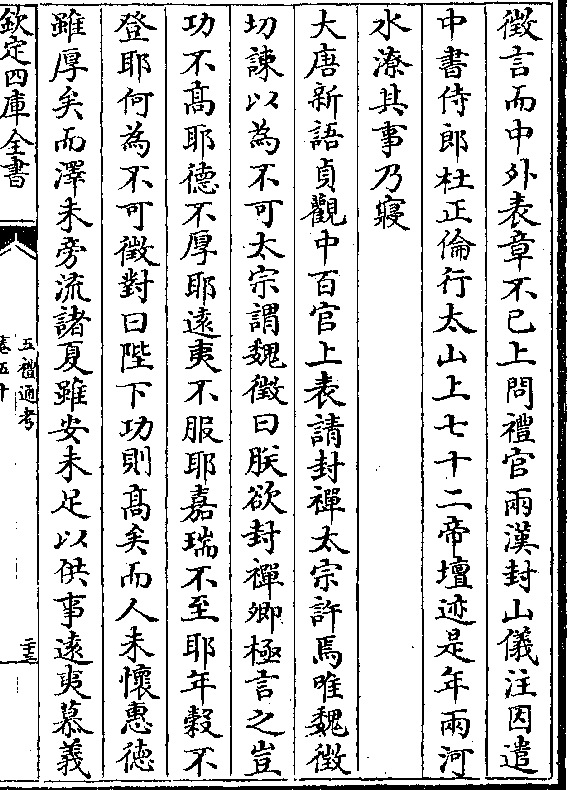 徵言而中外表章不已上問禮官兩漢封山儀注因遣
中書侍郎杜正倫行太山上七十二帝壇迹是年兩河
水潦其事乃寢
大唐新語貞觀中百官上表請封禪太宗許焉唯魏徵
切諫以為不可太宗謂魏徵曰朕欲封禪卿極言之豈
功不髙耶德不厚耶逺夷不服耶嘉瑞不至耶年榖不
登耶何為不可徵對曰陛下功則髙矣而人未懷惠德
雖厚矣而澤未旁流諸夏雖安未足以供事逺夷慕義
欽定四庫全書
五禮通考
卷五十
二十三